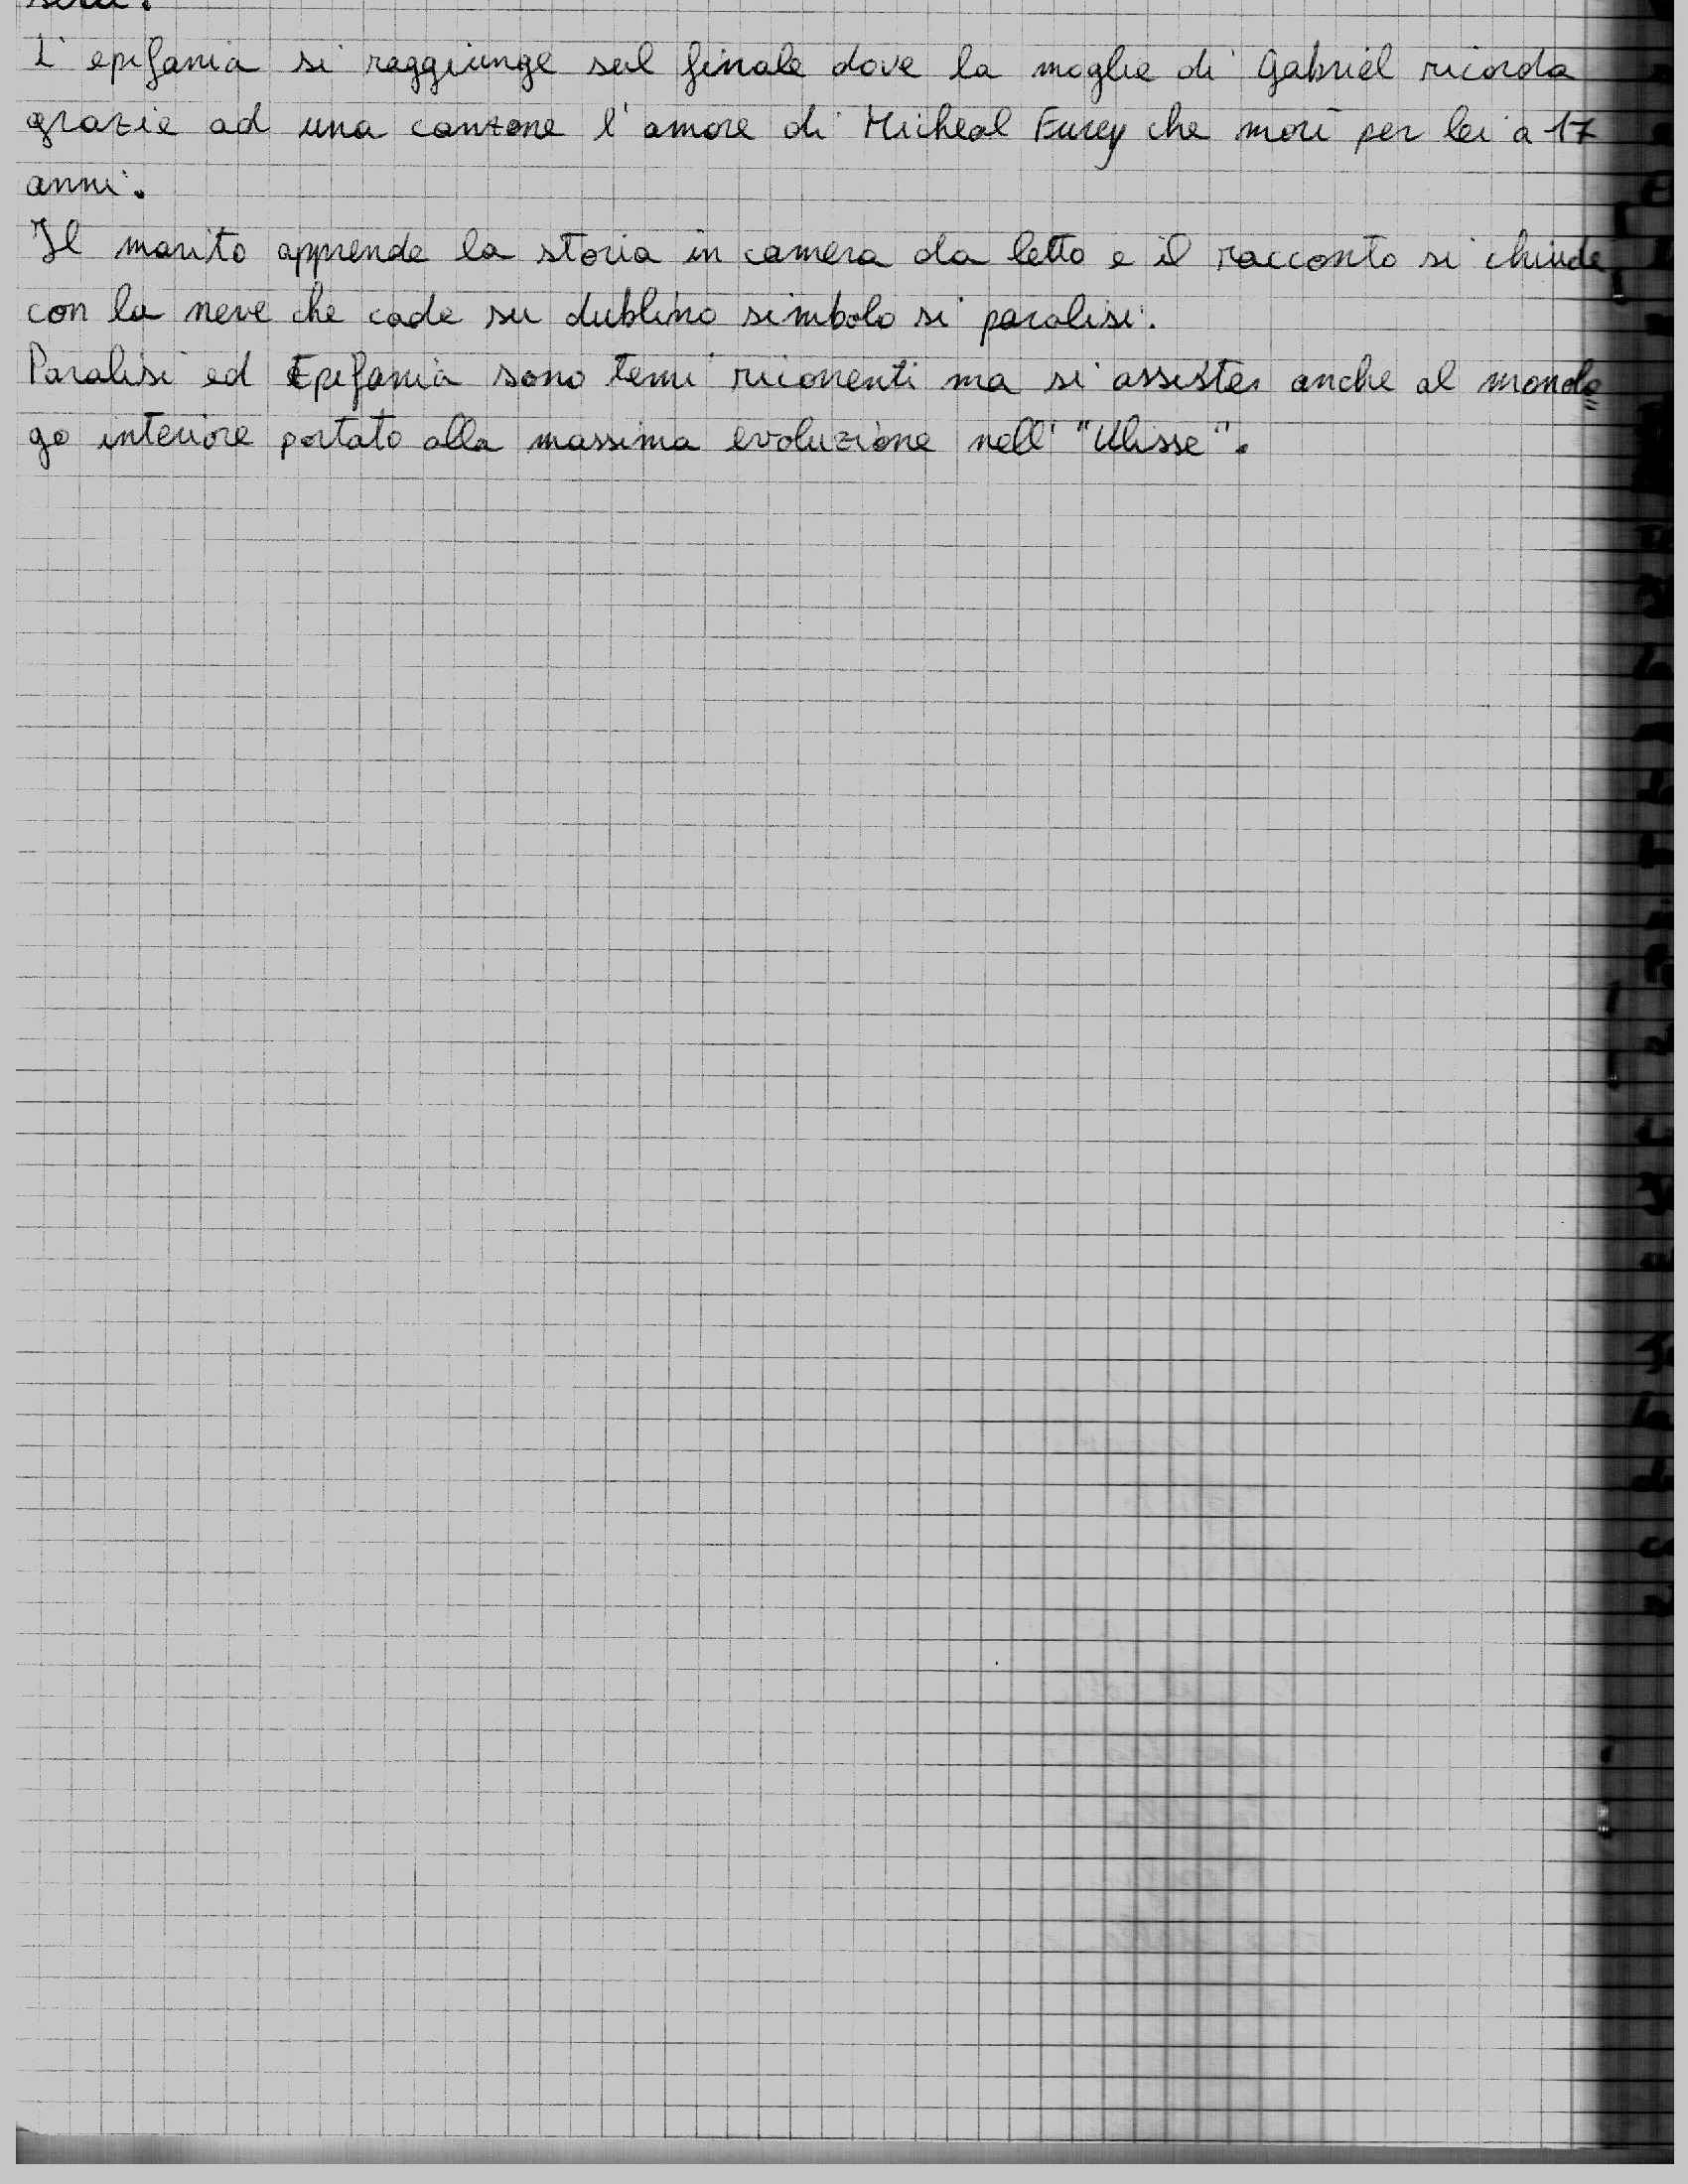 L'epifania si raggiunge sul finale dove la moglie di Gabriel ricorda
grazie ad una canzone l'amore di Micheal Furey che morì per lei a 17
anni.
Il marito apprende la storia in camera da letto e il racconto si chiude
con la neve che cade su dublino simbolo si paralisi.
Paralisi ed Epifania sono temi riconenti ma si assiste anche al monolo=
go interiore portato alla massima evoluzione nell' "Ulisse".